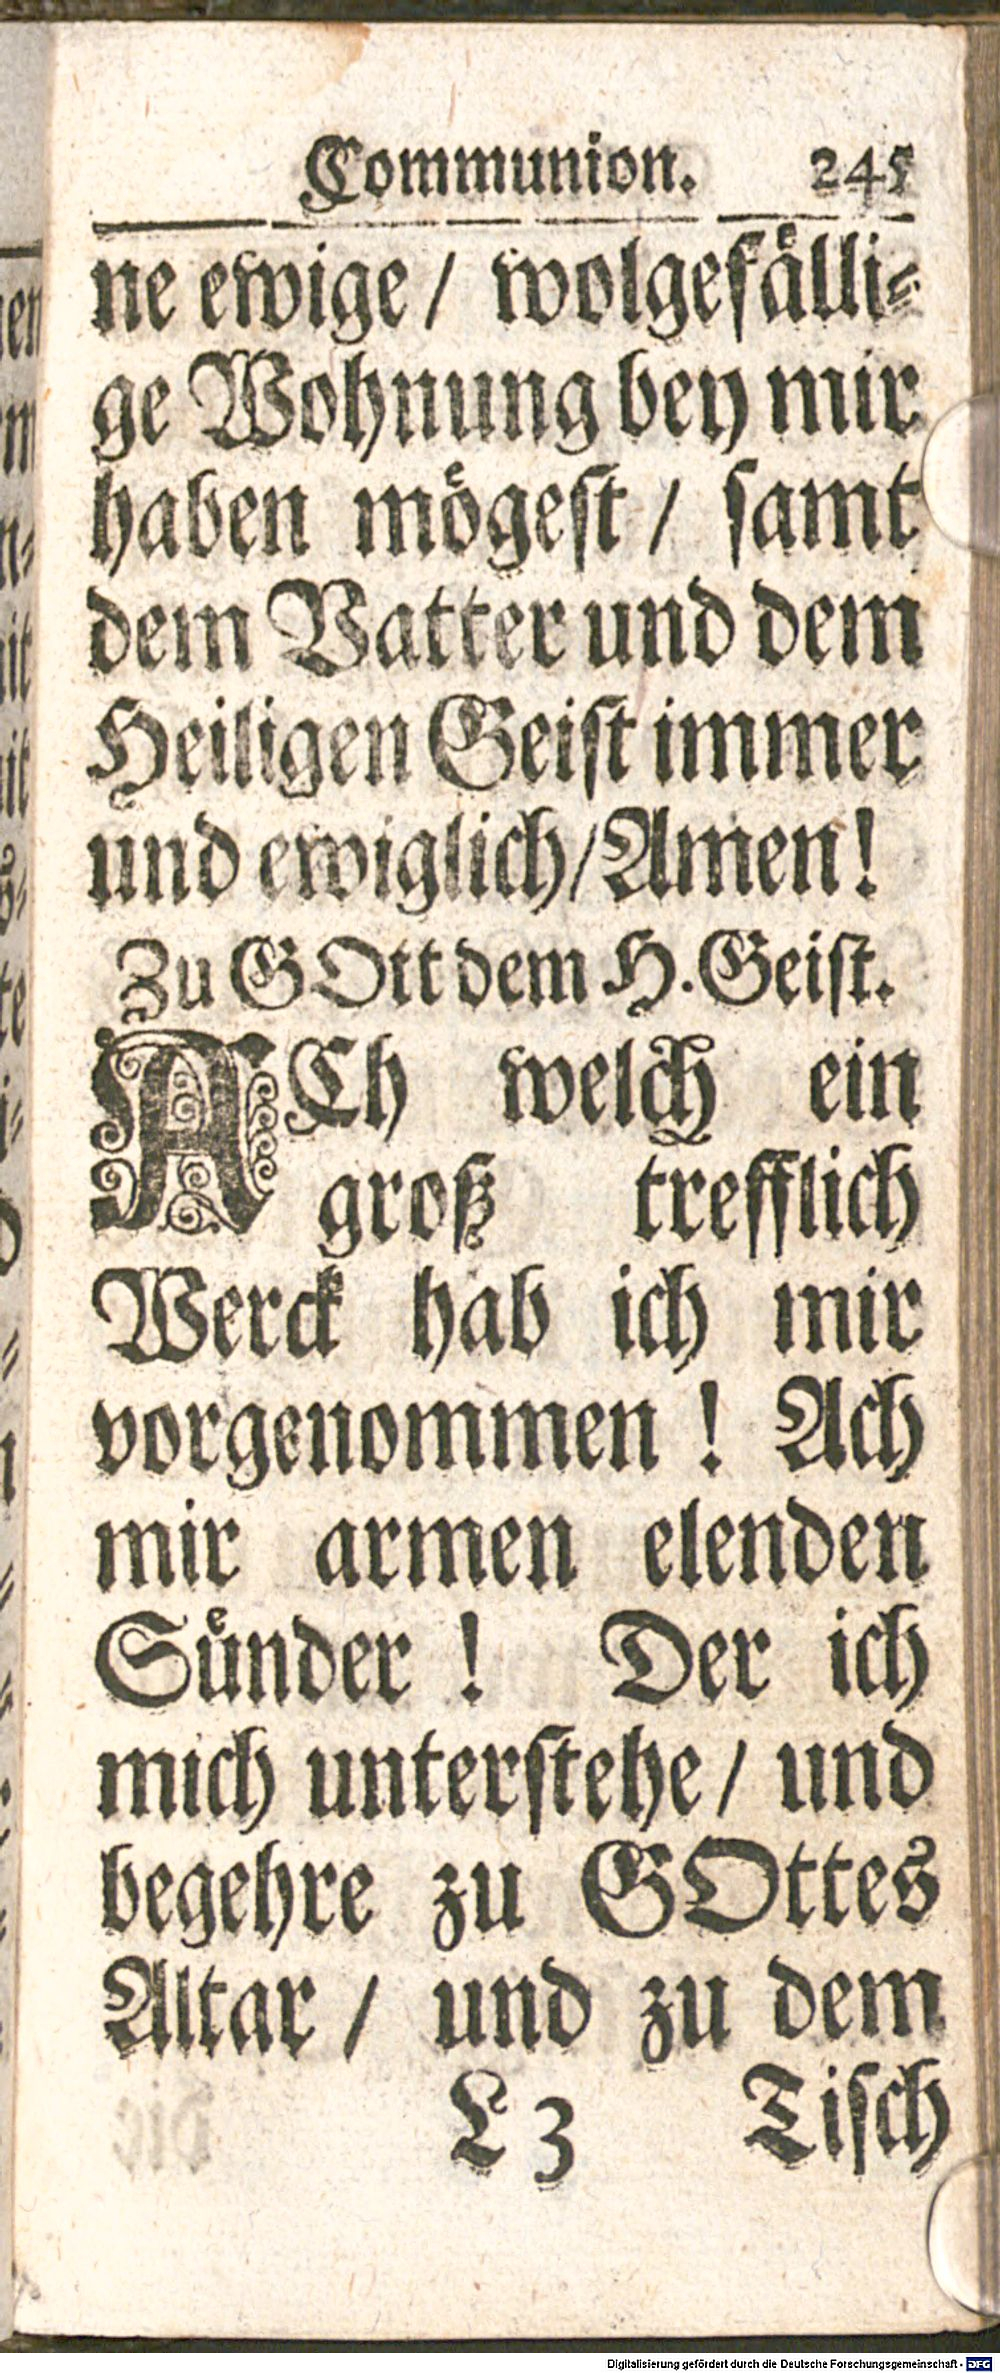 Communion. 245
ne ewige / wolgefälli-
ge Wohnung bey mir
haben mögest / samt
dem Vatter und dem
Heiligen Geist immer
und ewiglich / Amen!
Zu GOtt dem H. Geist.
ACh welch ein
groß trefflich
Werck hab ich mir
vorgenommen ! Ach
mir armen elenden
Sünder ! Der ich
mich unterstehe / und
begehre zu GOttes
Altar / und zu dem
L 3 Tisch
Digitalisierung gefördert durch die Deutsche Forschungsgemeinschaft - DFG